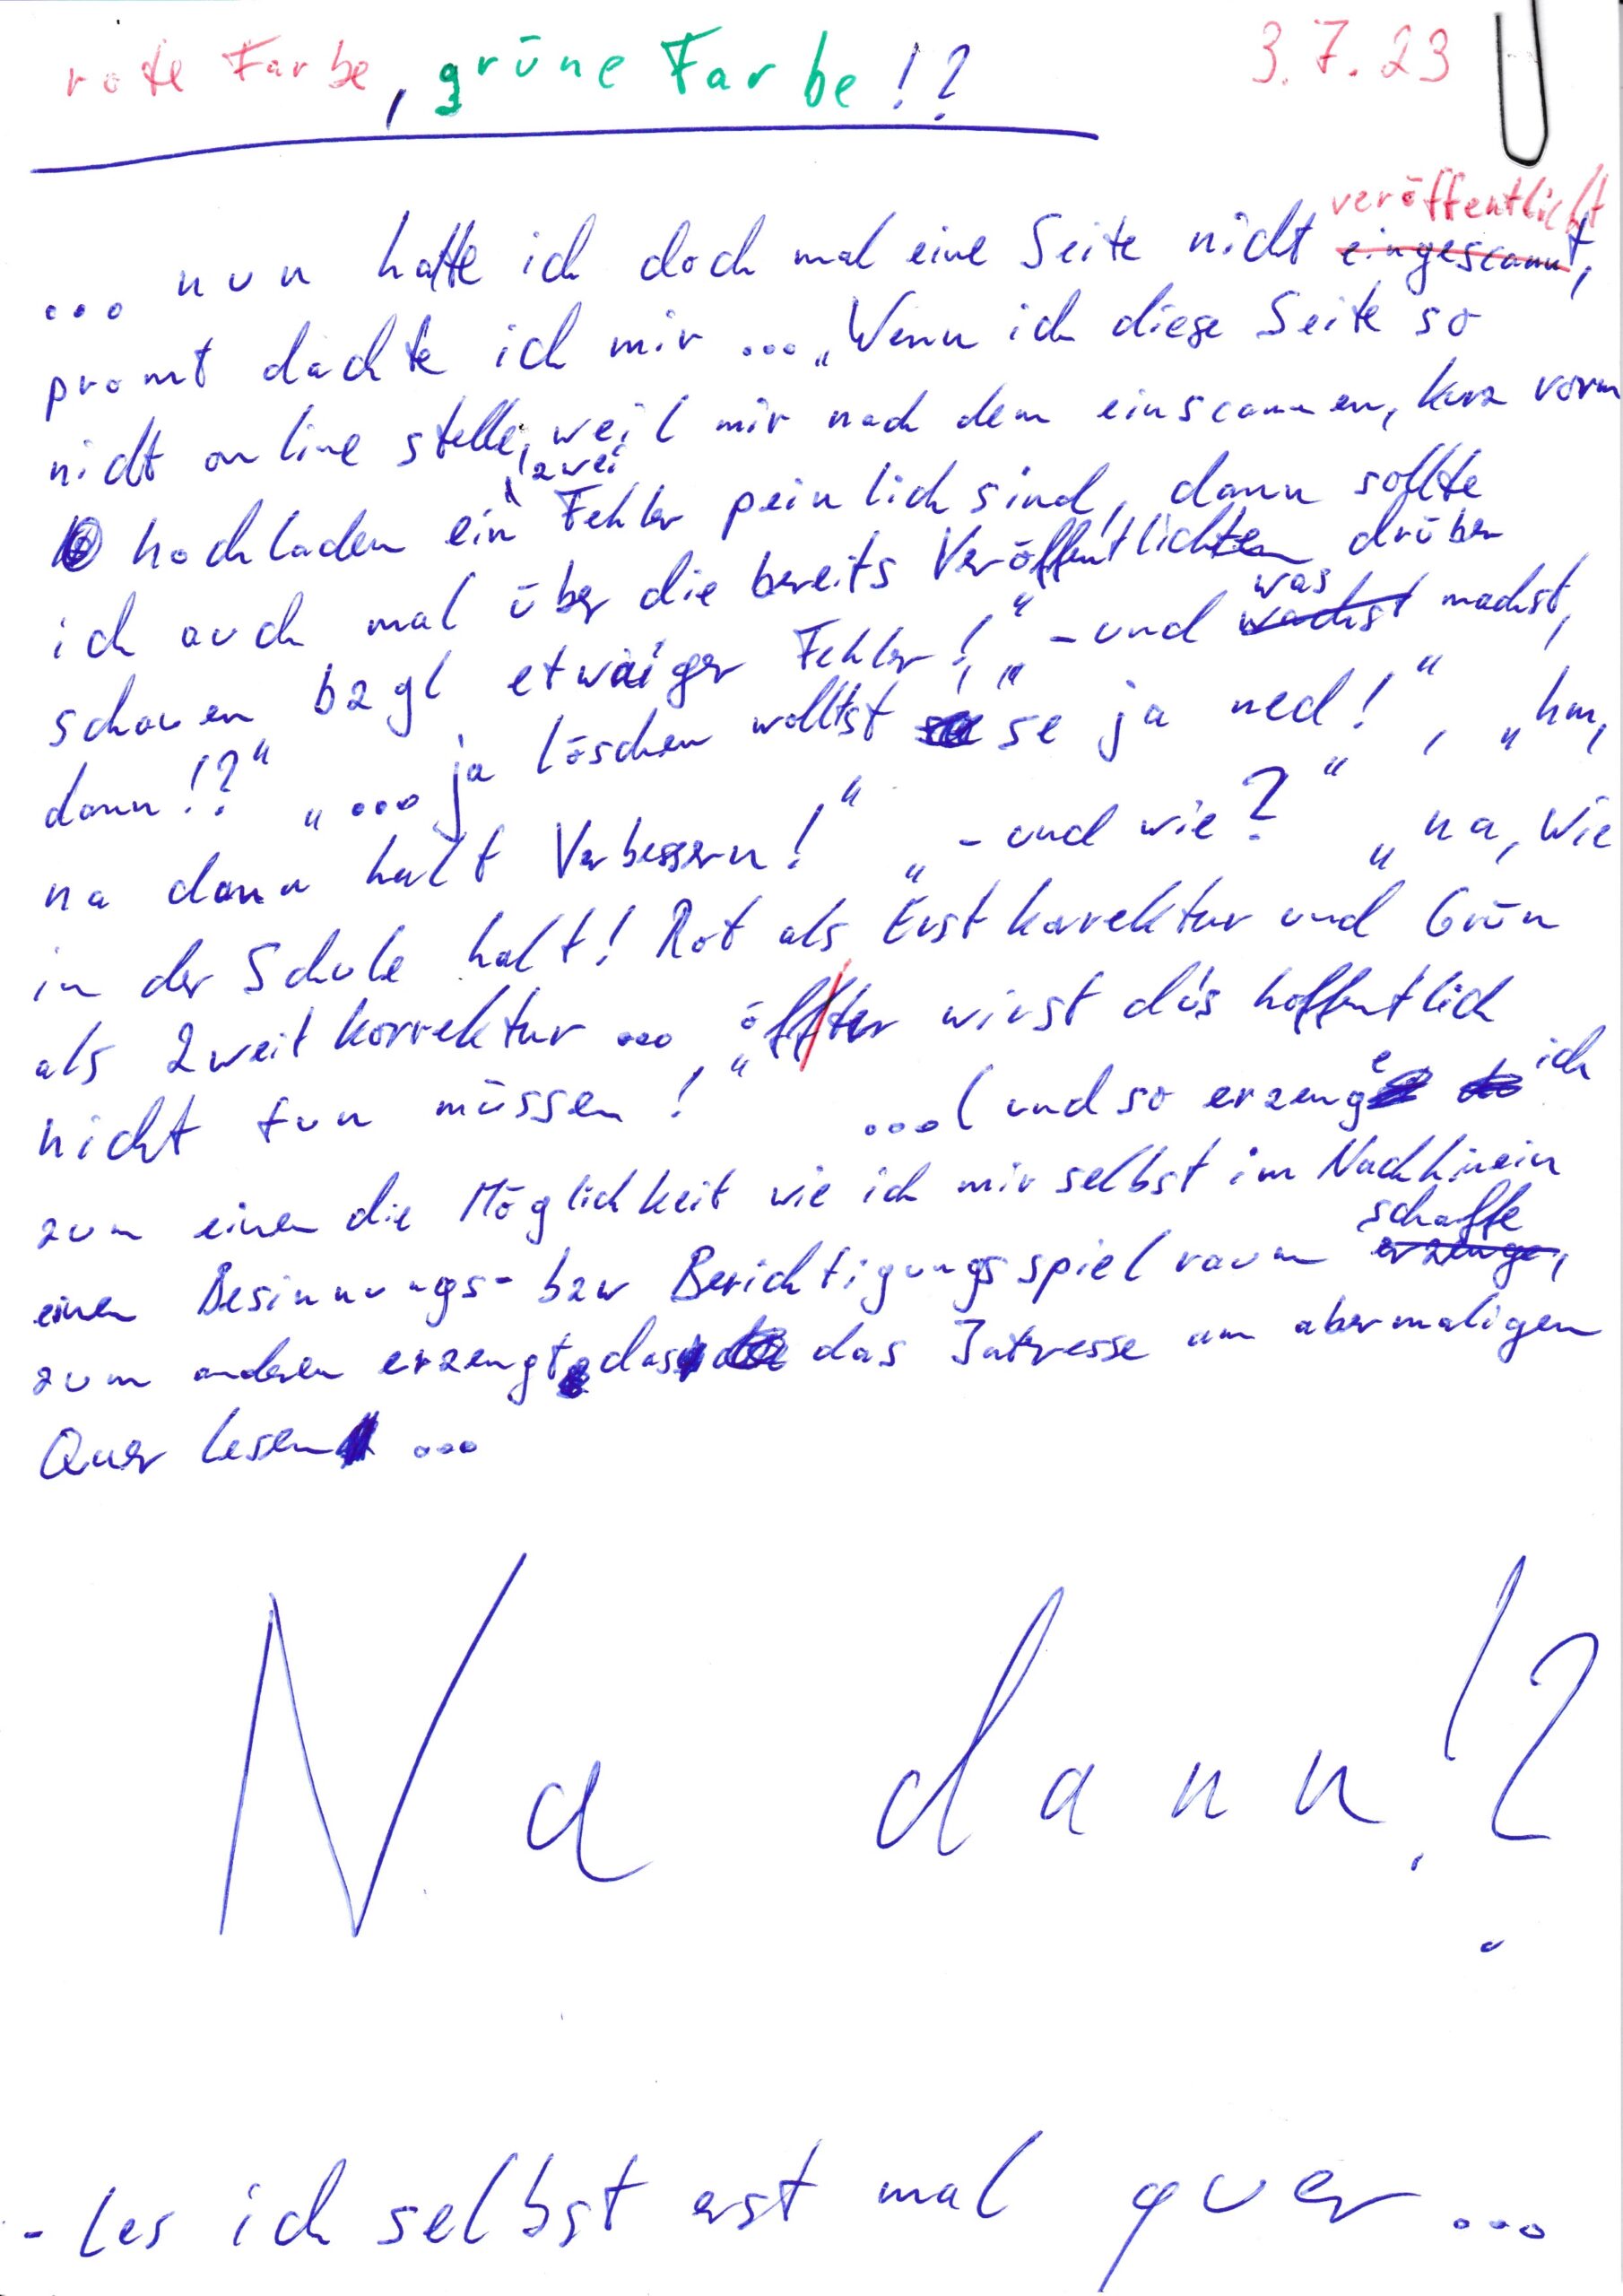 rote Farbe, grüne Farbe!? 3.7.23
veröffentlicht
... nun hatte ich doch mal eine Seite nicht eingescannt,
promt dachte ich mir ... „Wenn ich diese Seite so
nicht online stelle, weil mir nach dem einscannen, kurz vorm
zwei
hochladen ein Fehler peinlich sind, dann sollte
ich auch mal über die bereits Veröffentlichten drüber
was
schauen bzgl etwaiger Fehler!" „-und machst,
dann!?" „... ja löschen wolltst se ja ned!", „hm,
na dann halt Verbessern!" „-und wie?" „na, wie
in der Schule halt! Rot als Erstkorrektur und Grün
als Zweitkorrektur ... „öffter wirst du's hoffentlich
nicht tun müssen! ...(und so erzeuge ich
zum einen die Möglichkeit wie ich mir selbst im Nachhinein
schaffe
einen Besinnungs- bzw Berichtigungsspielraum erzeuge,
zum anderen erzeugt das das Intresse am abermaligen
Quer lesen ...
Na dann!?
- les ich selbst erst mal quer ...